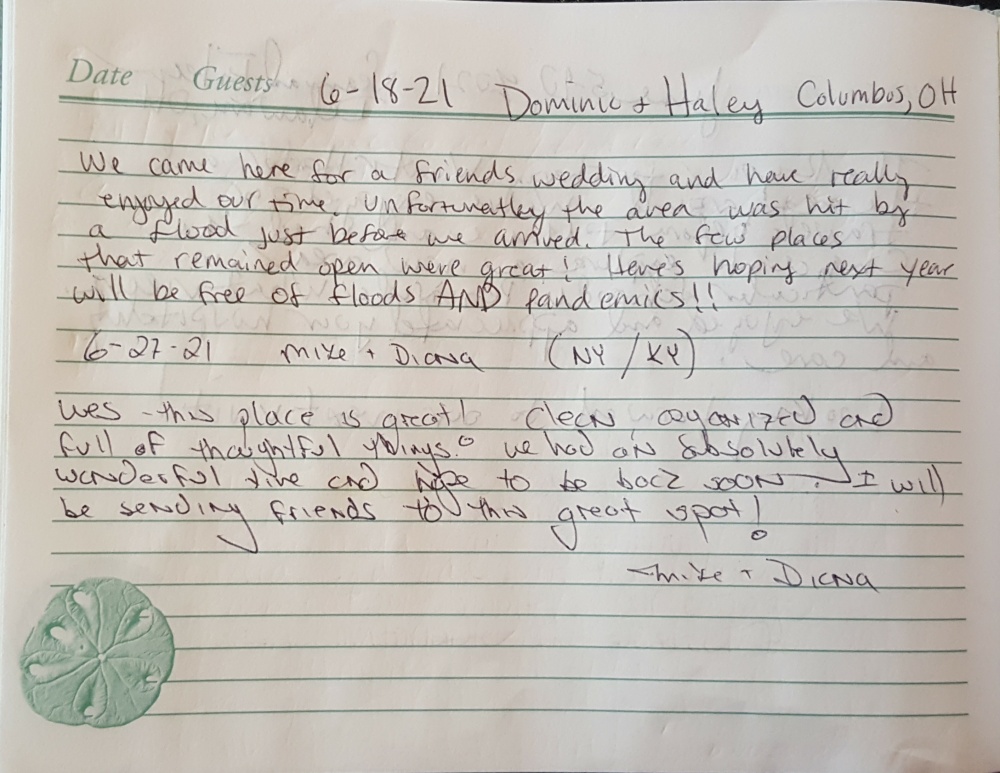 Date Guests 6-18-21 Dominic + Haley Columbus, OH
We came here for a friends wedding and have really
enjoyed our time. Unfortunatley the area was hit by
a flood just before we arrived. The few places
that remained open were great! Here's hoping next year
will be free of floods AND pandemics!!
6-27-21 Mike + Diana (NY/KY)
Wes - this place is great! Clean, organized and
full of thoughtful things. We had an absolutely
wonderful time and hope to be back soon. I will
be sending friends to this great spot!
-Mike + Diana